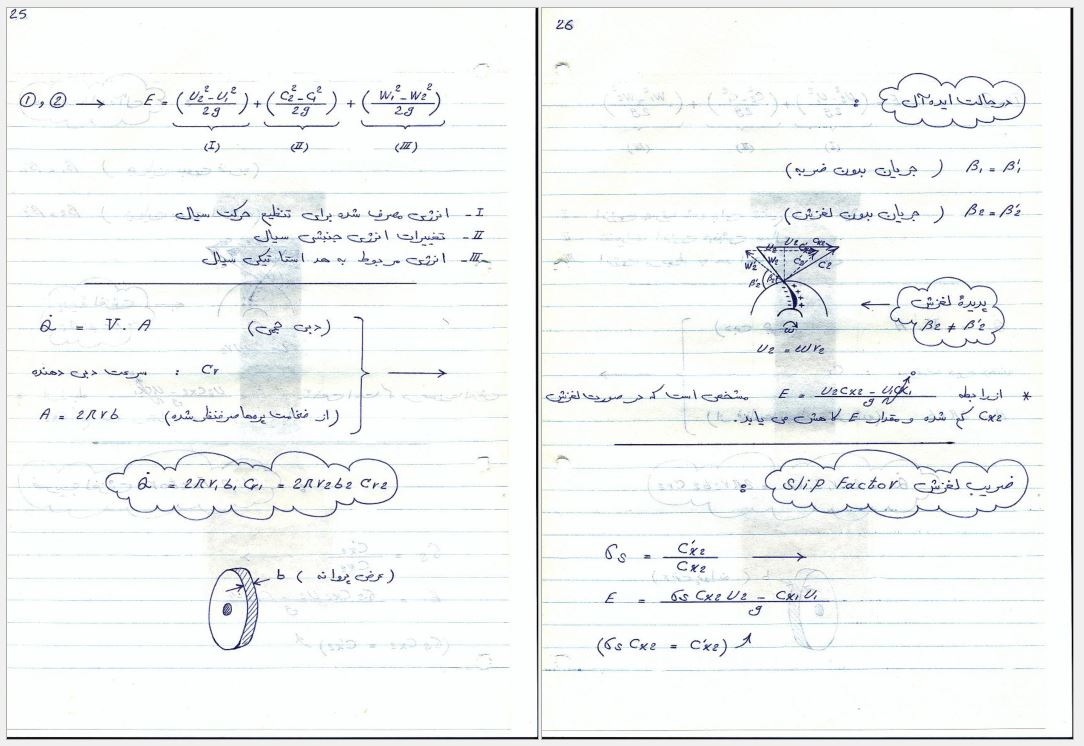 25
①, ② → E = (U₂² - U₁² / 2g) + (C₂² - C₁² / 2g) + (W₁² - W₂² / 2g)
(I) (II) (III)
I - انرژی مصرف شده برای تنظیم حرکت سیال
II - تغییرات انرژی جنبشی سیال
III - انرژی مربوط به هد استاتیکی سیال
Q̇ = V . A (دبی حجمی)
سرعت دبی دهنده : Cr →
A = 2πrb (از ضخامت پره‌ها صرفنظر شده)
Q̇ = 2πr₁b₁Cr₁ = 2πr₂b₂Cr₂
b (عرض پروانه)
26
در حالت ایده‌آل :
β₁ = β₁′ (جریان بدون ضربه)
β₂ = β₂′ (جریان بدون لغزش)
U₂ Cx₂
W₂′ W₂ C₂′ C₂
β₂′ β₂
ω
U₂ = ωr₂
← پدیدۀ لغزش
β₂ ≠ β₂′
* از رابطه E = U₂Cx₂ - U₁Cx₁ / g مشخص است که در صورت لغزش
Cx₂ کم شده و مقدار E کاهش می یابد.
ضریب لغزش Slip Factor :
σs = C′x₂ / Cx₂ →
E = σs Cx₂ U₂ - Cx₁ U₁ / g
(σs Cx₂ = C′x₂)